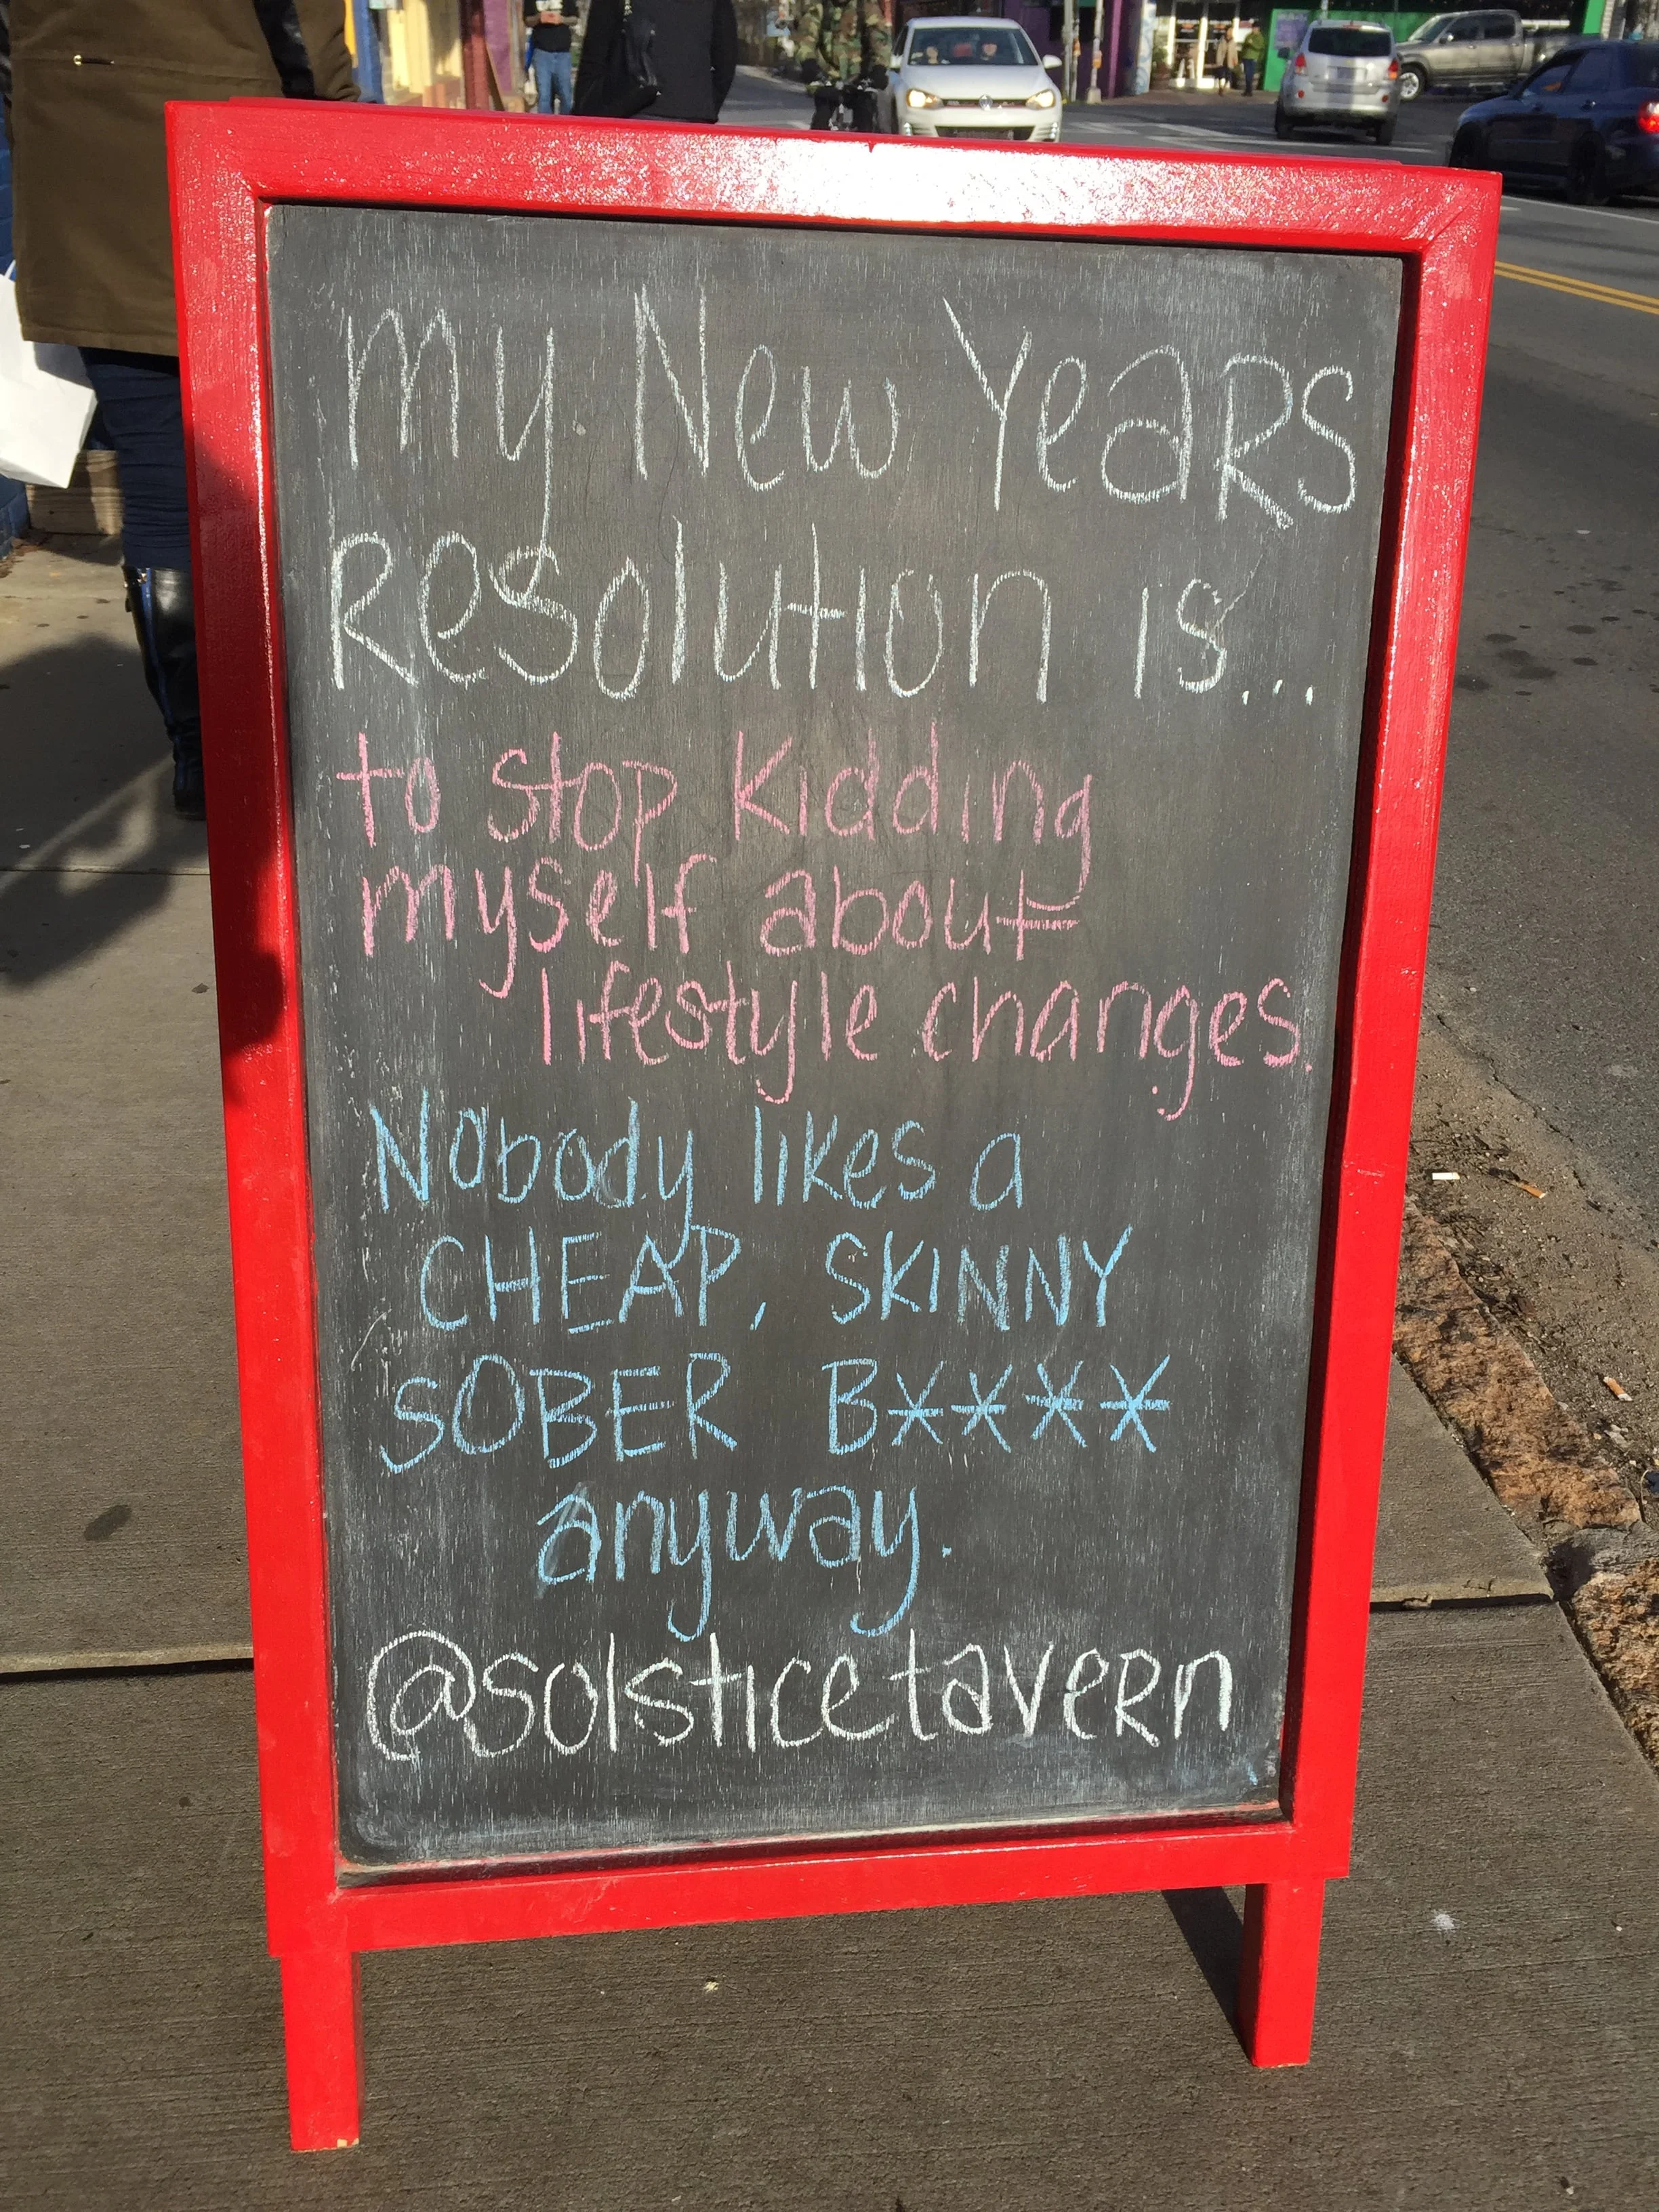 my New Years
Resolution is...
to stop kidding
myself about
lifestyle changes.
Nobody likes a
CHEAP, SKINNY
SOBER B****
anyway.
@solsticetavern